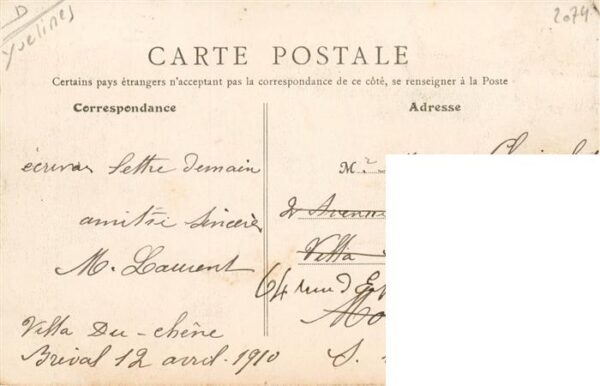 D
Yvelines
2074
CARTE POSTALE
Certains pays étrangers n'acceptant pas la correspondance de ce côté, se renseigner à la Poste
Correspondance
Adresse
écrivai lettre demain
amitié sincère
M. Laurent
Villa Du-chêne
Bréval 12 avril. 1910
M.r
2 Avenue
Villa
64 rue d'
S.